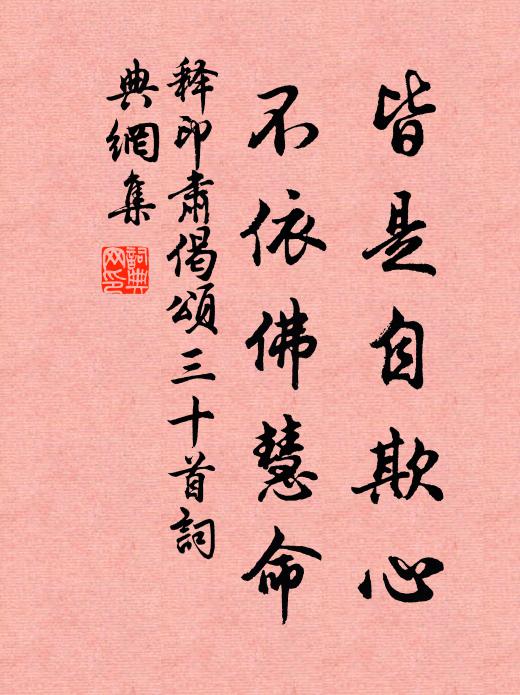 皆是自欺心
不依佛慧命
释印肃偈頌三十首詞
典網集
詞典
网印